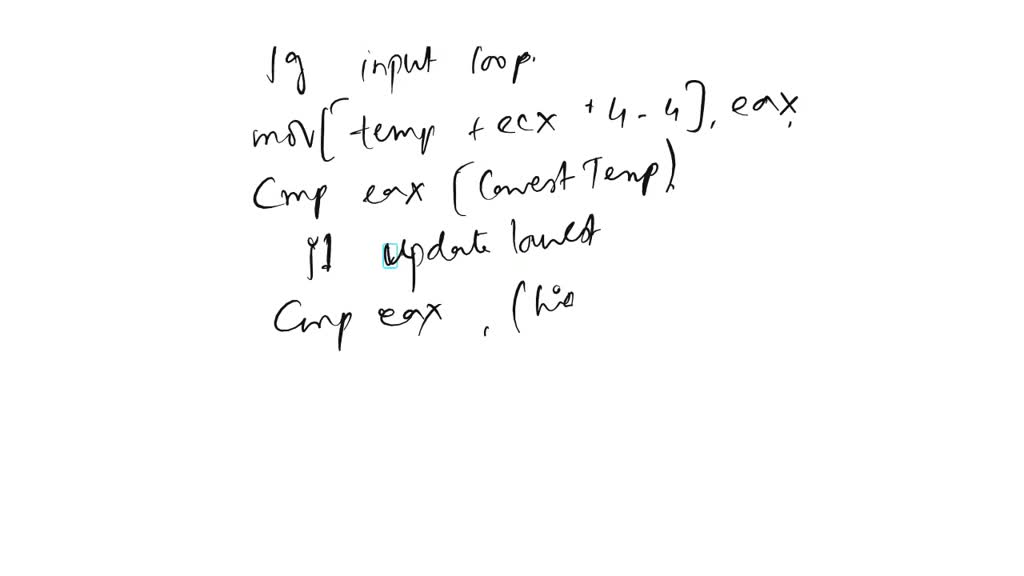 jg input loop.
mov[temp + ecx + 4 - 4], eax
Cmp eax (lowest Temp)
jl update lowest
Cmp eax , (hi